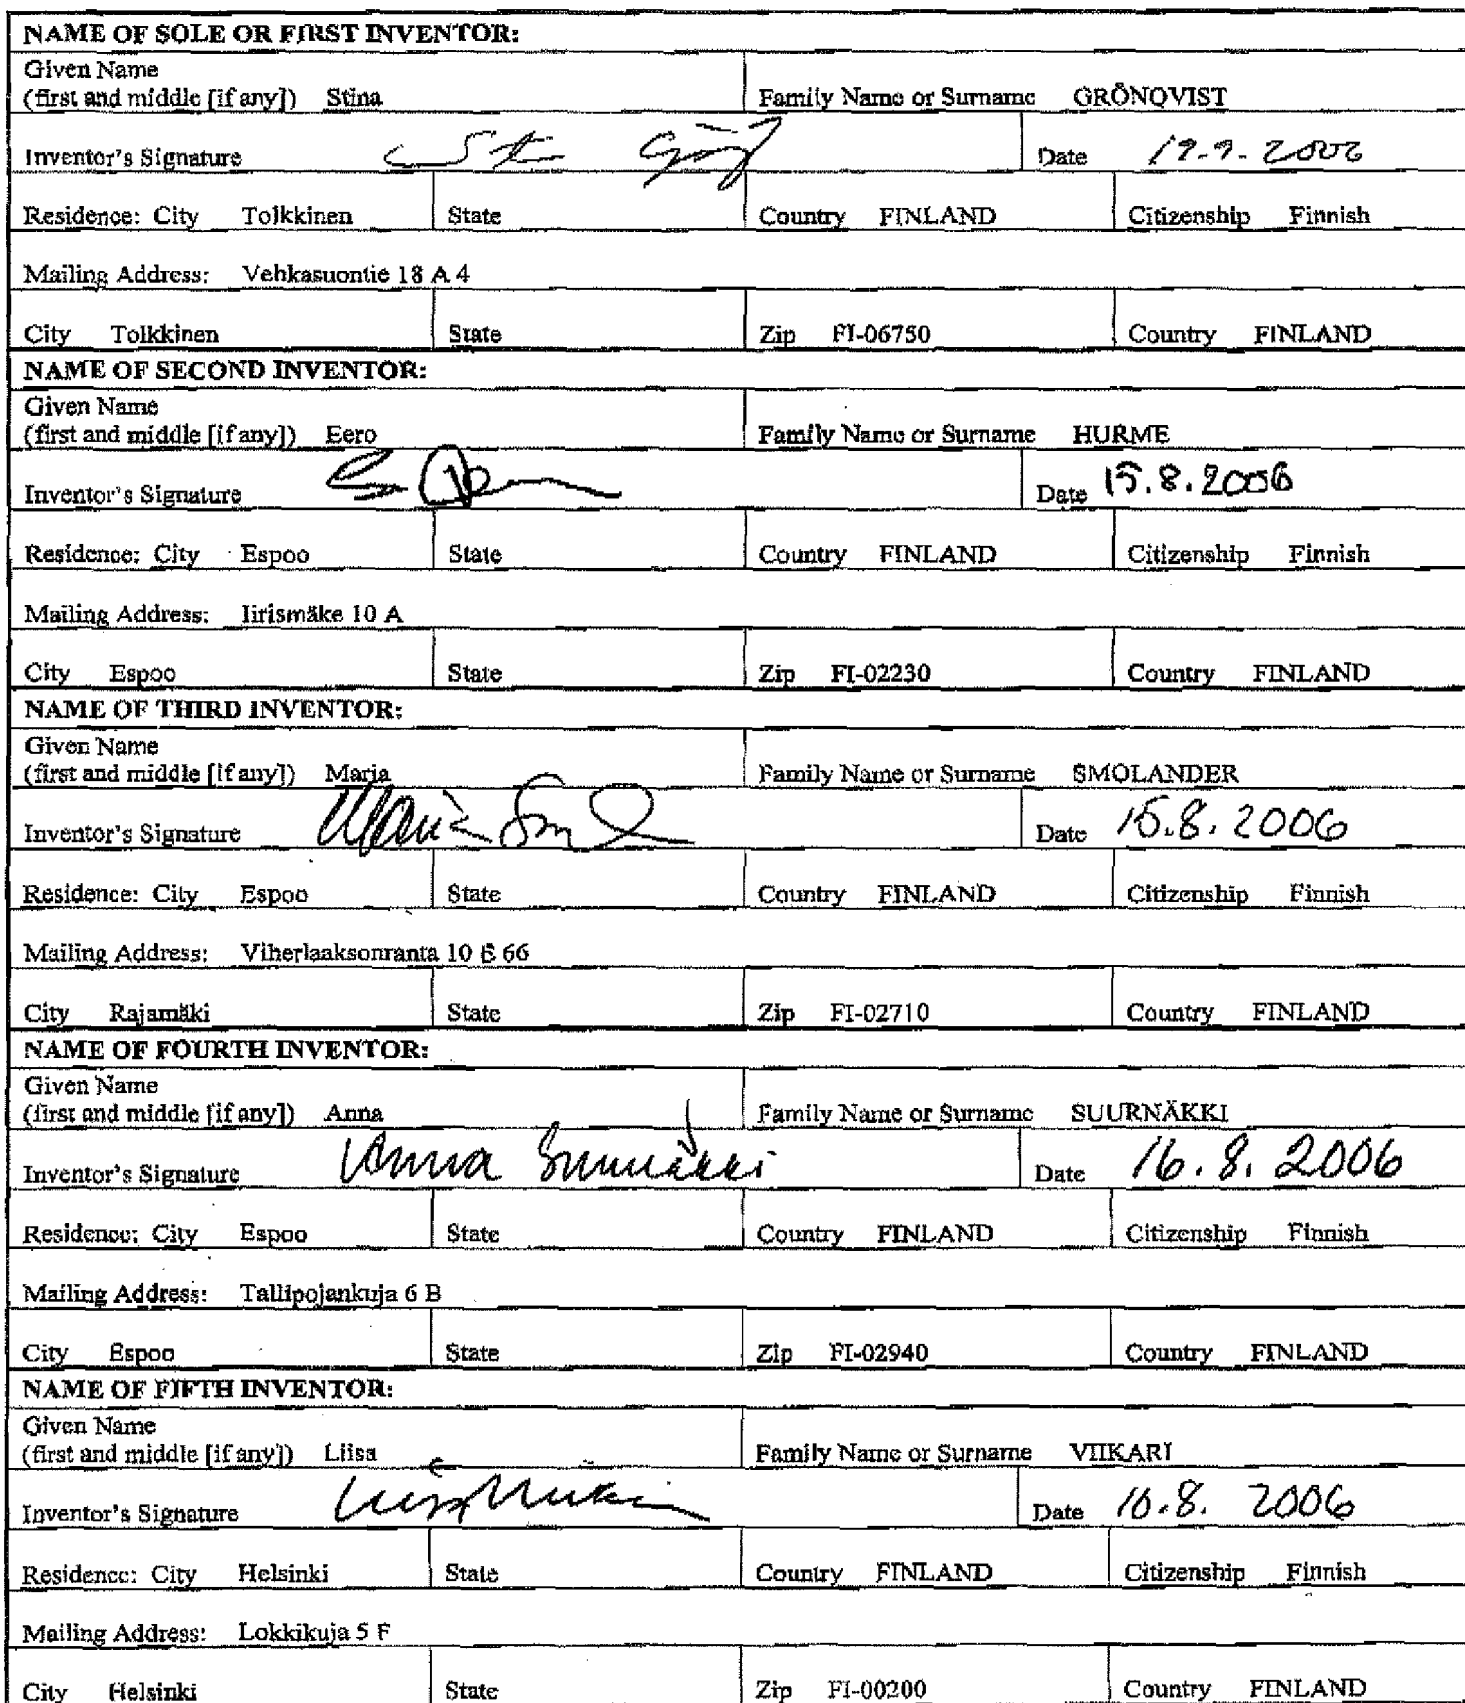 NAME OF SOLE OR FIRST INVENTOR:
Given Name
(first and middle [if any]) Stina Family Name or Surname GRÖNQVIST
Inventor's Signature Date
Residence: City Tolkkinen State Country FINLAND Citizenship Finnish
Mailing Address: Vehkasuontie 18 A 4
City Tolkkinen State Zip FI-06750 Country FINLAND
NAME OF SECOND INVENTOR:
Given Name
(first and middle [if any]) Eero Family Name or Surname HURME
Inventor's Signature Date 15.8.2006
Residence: City Espoo State Country FINLAND Citizenship Finnish
Mailing Address: Iirismäke 10 A
City Espoo State Zip FI-02230 Country FINLAND
NAME OF THIRD INVENTOR:
Given Name
(first and middle [if any]) Maria Family Name or Surname SMOLANDER
Inventor's Signature Date 15.8.2006
Residence: City Espoo State Country FINLAND Citizenship Finnish
Mailing Address: Viherlaaksonranta 10 E 66
City Rajamäki State Zip FI-02710 Country FINLAND
NAME OF FOURTH INVENTOR:
Given Name
(first and middle [if any]) Anna Family Name or Surname SUURNÄKKI
Inventor's Signature Anna Suurnäkki Date 16.8.2006
Residence: City Espoo State Country FINLAND Citizenship Finnish
Mailing Address: Tallipojankuja 6 B
City Espoo State Zip FI-02940 Country FINLAND
NAME OF FIFTH INVENTOR:
Given Name
(first and middle [if any]) Liisa Family Name or Surname VIIKARI
Inventor's Signature Date 16.8. 2006
Residence: City Helsinki State Country FINLAND Citizenship Finnish
Mailing Address: Lokkikuja 5 F
City Helsinki State Zip FI-00200 Country FINLAND